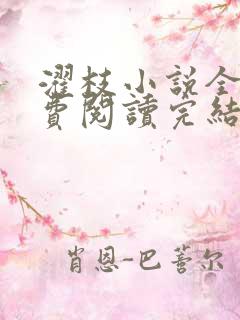 濯枝小説全
費閱讀完結
肖恩-巴蕾尔